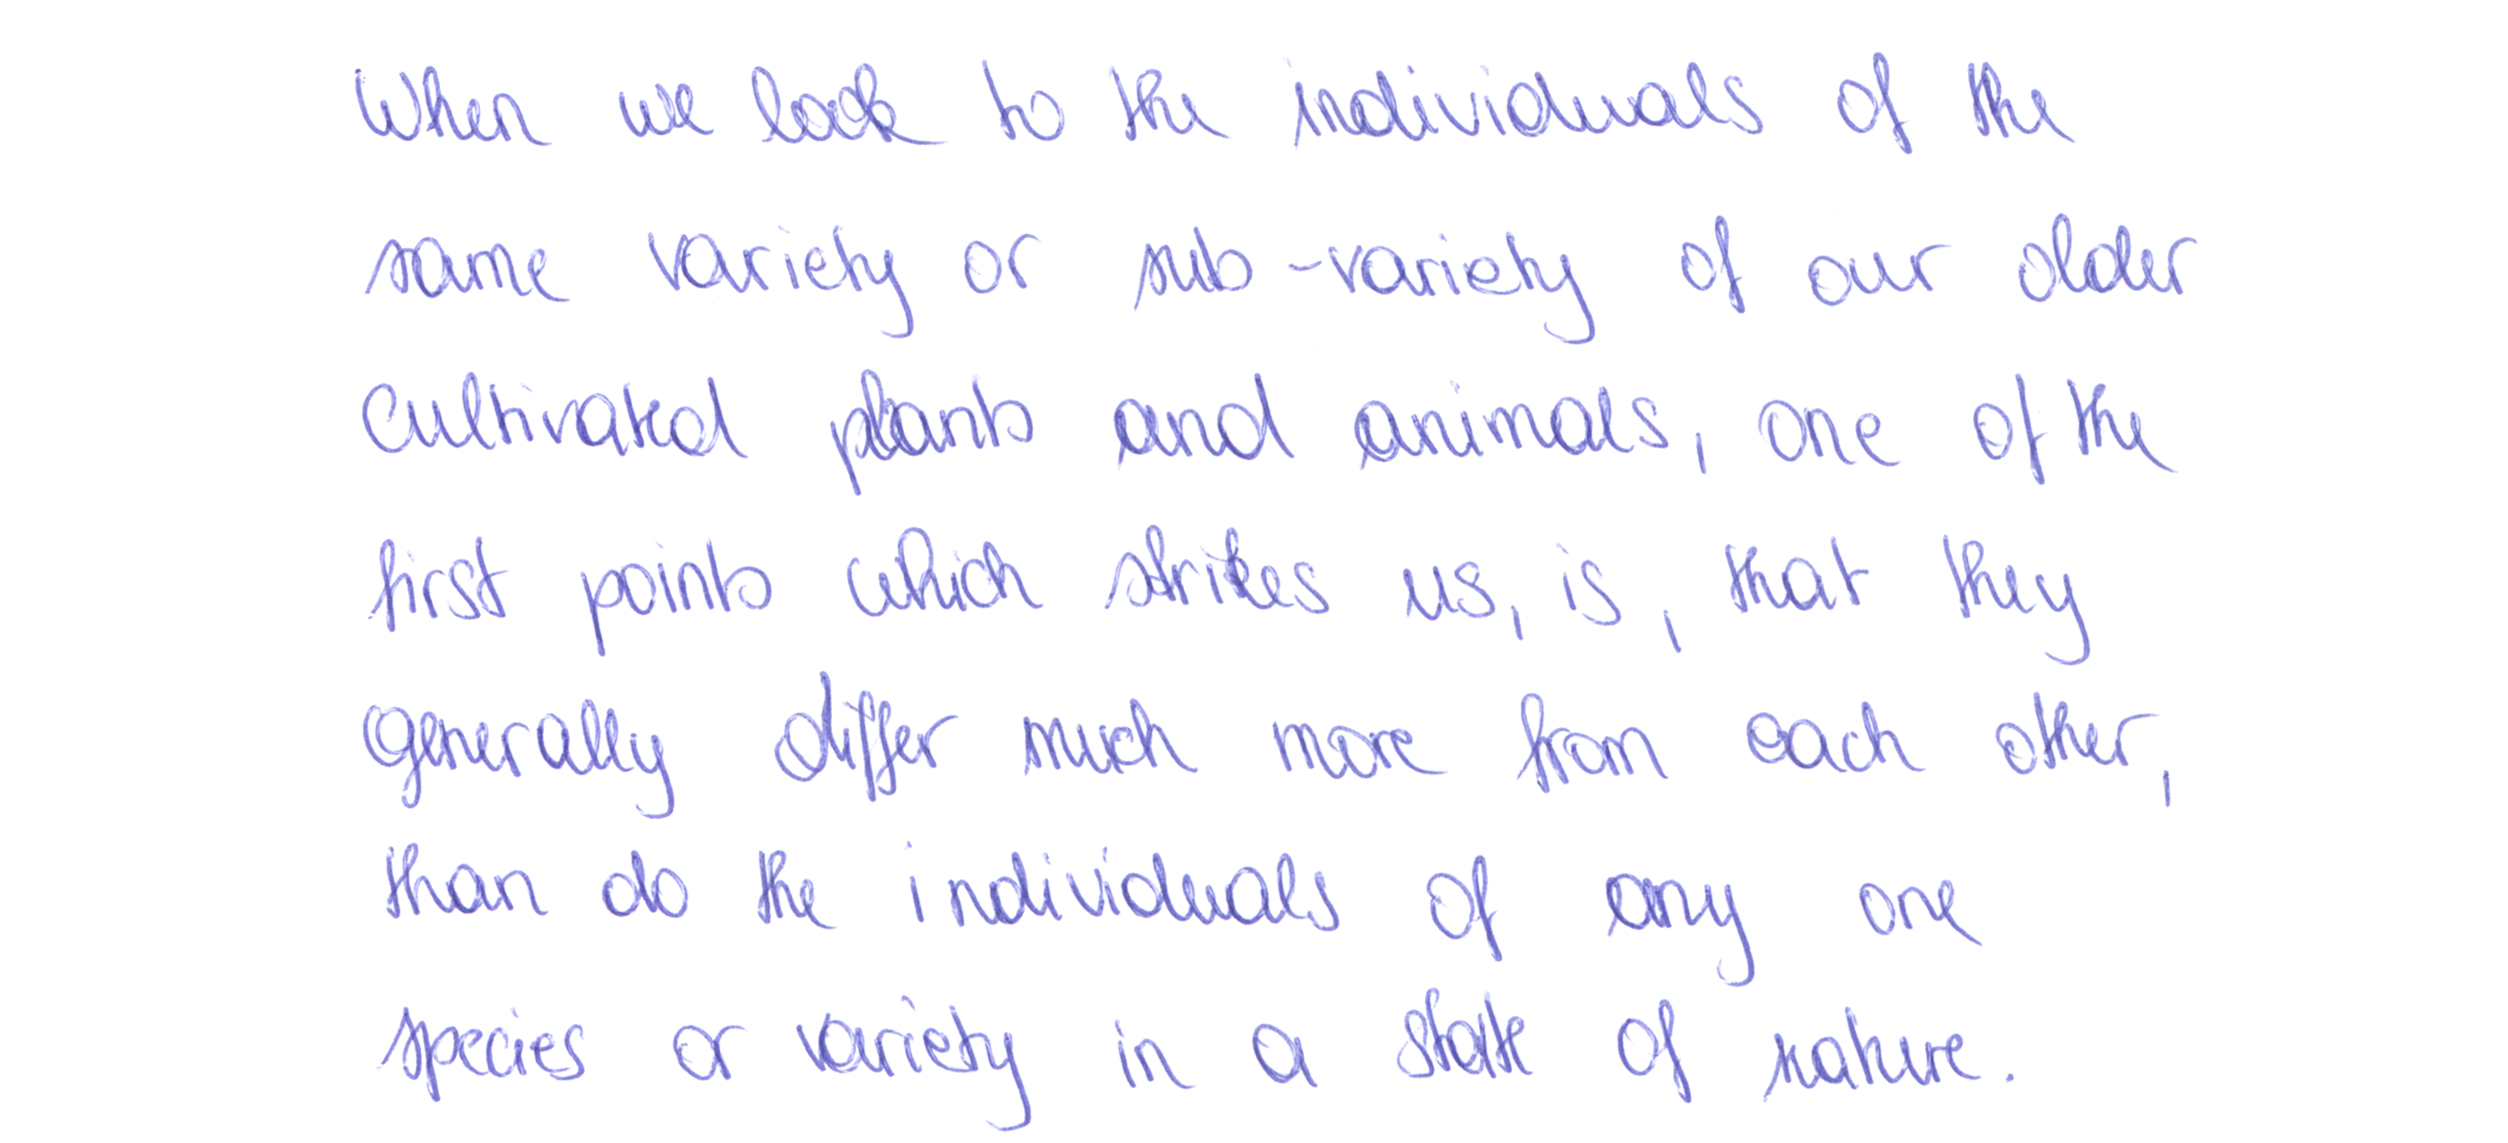 When we look to the individuals of the
same variety or sub-variety of our older
cultivated plants and animals, one of the
first points which strikes us, is, that they
generally differ much more from each other,
than do the individuals of any one
species or variety in a state of nature.